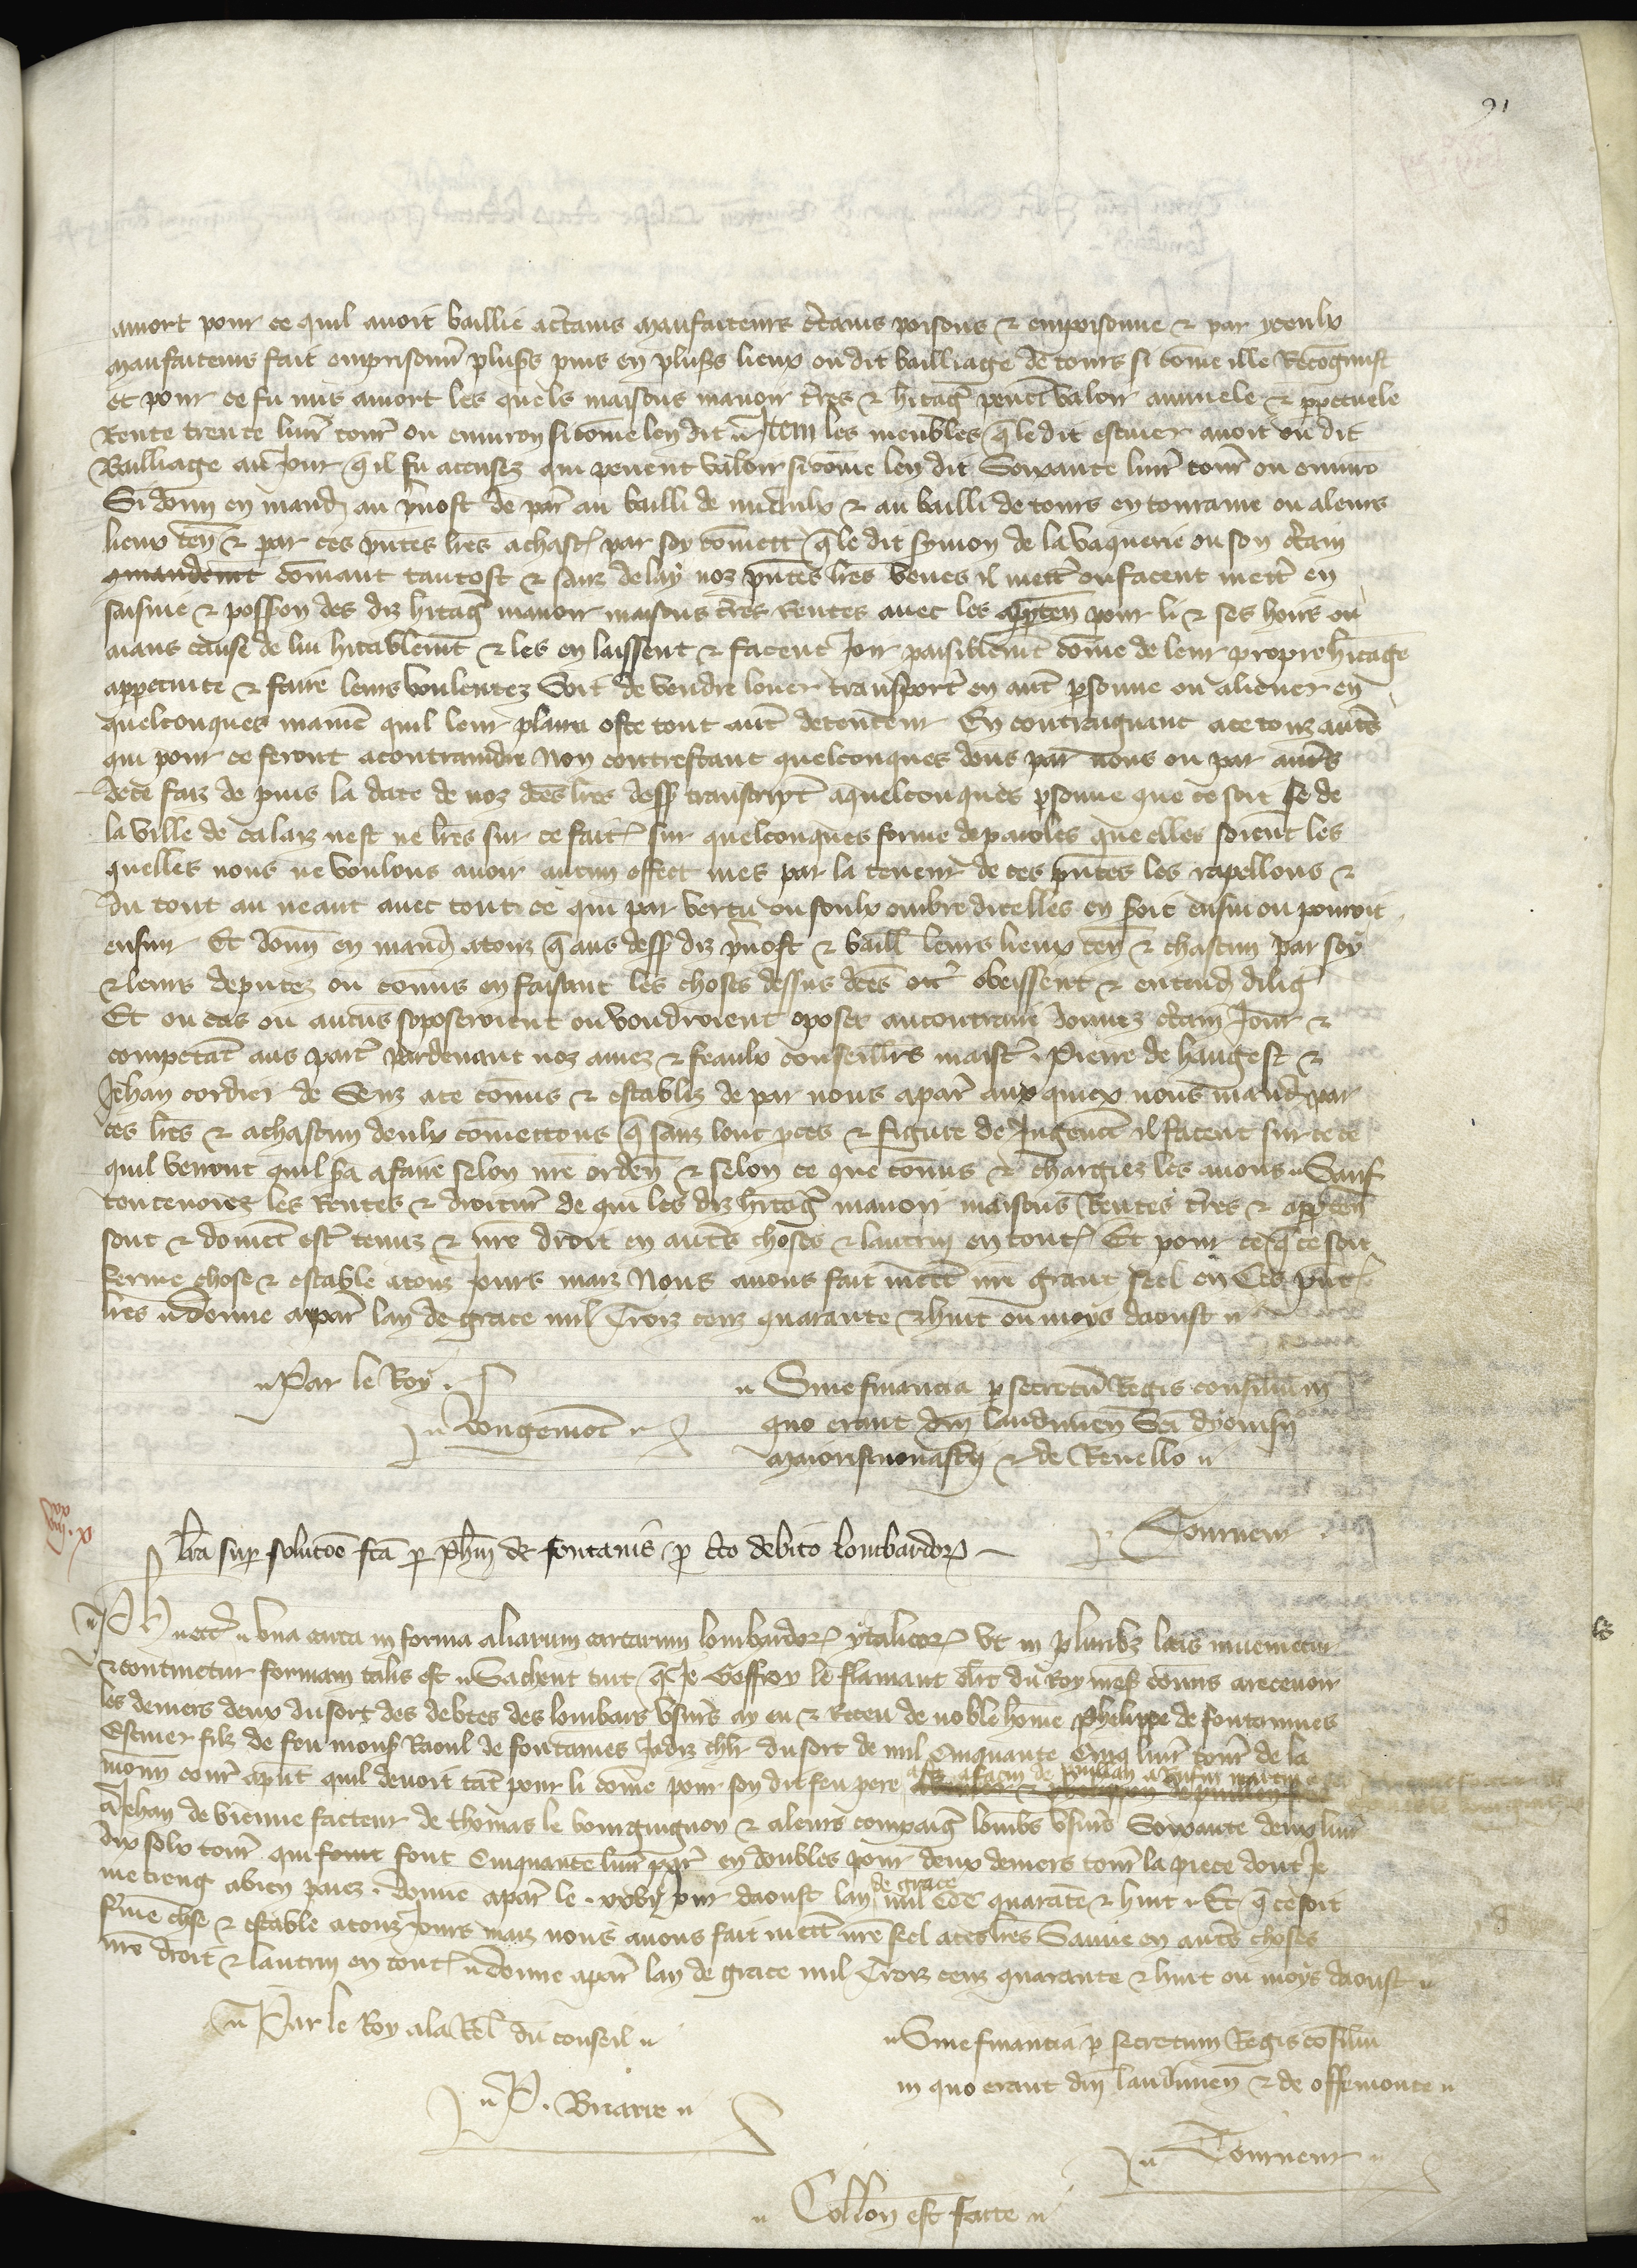 91
amort pour ce quil avoit baillie actains maufaiteurs ctains poisons & empoisonne & par yceulx
maufaiteurs fait emprisonn plusrs puis en plusrs lieux ou dit bailliage de tours si come ille Recognust
et pour ce fu mis amort les quels maisons manoir tres & hitag peuent valoir annuele & ppetuele
Rente trente livr tour ou environ si come len dit Item les meubles q le dit escuier avoit ou dit
Bailliage au Jour q il fu accusez qui peuent valoir si come len dit Soixante livr tour ou enviro
Si donn en mand au pvost de par au bailli de & au bailli de tours en touraine ou aleurs
lieux ten & par ces pntes lres achasc par soy comett q le dit symon de la vaquerie ou son ctain
comant tantost & sanz delay noz pntes lres veues il mett ou facent mett en
saisine & possion des diz hitag manoir maisons tres rentes avec les appten pour li & ses hoirs ou
aians cause de lui hitablemt & les en laissent & facent Joir paisiblemt come de leur propre hitage
appetuite & faire leurs voulentez Soit de vendre louer transport en aut psonne ou aliener en
quelconques manie quil leur plaira oste tout aut detenteur En contraignant ace touz autes
qui pour ce seront acontraindre Non contrestant quelconques dons par nous ou par autrs
de ce faiz de puis la date de noz dtes lres dess transcript aquelconques psonne que ce soit se de
la ville de calaiz nest ne lres sur ce fait sur quelconques forme de paroles que elles soient les
quelles nous ne voulons avoir aucun effect mes par la teneur de ces pntes les rapellons &
du tout au neant avec tout ce qui par vertu ou soulx ombre dicelles en soit ensui ou pouroit
ensuir Et donn en mand atouz q aus dess diz pvost & baill leurs lieux ten & chascun par soy
& leurs deputez ou comis en faisant les choses dessus dtes obeissent & entend dilig
Et ou cas ou aucuns soposeroient ou voudroient oposer au contraire donnez ctain Jour &
competat aus part pardevant noz amez & feaulx conseillrs maistr Pierre de hangest &
Jehan cordier de Senz ace comis & establiz de par nous apar aux quiex nous mand par
ces lres & achascun deulx comettons q sanz lonc pces & figure de Jugemt il facent sur ce ce
quil verront quil sra afaire selon nre orden & selon ce que comis & chargiez les avons Sauf
toutevoies les Rentes & droitur de qui les diz hitag manoir maisons Rentes tres & appten
sont & doivent estr tenuz & nre droit en autes choses & lautruy en tout Et pour ce q ce soit
ferme chose & estable atouz Jours maiz Nous avons fait mett nre grant seel en Ces pnt
lres donne apar lan de grace mil Troiz cenz quarante & huit ou moys daoust
Par le Roy
Vougemot
Sine financia p secretu Regis consiliu in
quo erant dni laudunen Sci dyonisii
maiorismonastii & de Revello
Tourneur
lra sup solutoe fca p Phm de fontanis p cto debito lombardor
Ph etc una carta in forma aliarum cartarum lombardor ytalicor ut in pluribz locis invenietur
& continetur formam talis est Sachent tuit q Je Goffroy le flamant clrc du Roy mess comis arecevoir
les deniers deux du sort des debtes des lombars usurs ay eu & Receu de noble home phelippe de fontainnes
Escuier filz de feu mons Raoul de fontaines Jadiz chlr du sort de mil Cinquante Cinq livr tour de la
monn cour apnt quil devoit tat pour li come pour son dit feu pere
aJehan de vienne facteur de thomas le bourguignon & aleurs compaig lombs usurs Soixante deux livr
dix solx tour qui font Cinquante livr par en doubles pour deux deniers tour la piece dont Je
me tieng abien paiez donne apar le xxvi Jour daoust lan de grace mil CCC quarate & huit Et q ce soit
ferme chse & estable atouz Jours maiz nous avons fait mett nre seel aces lres Sauve en autes choses
nre droit & lautruy en tout donne apar lan de grace mil Troiz cenz quarante & huit ou moys daoust
Par le Roy ala Rel du conseil
P. Briarre
Sine financia p secretum Regis cosiliu
in quo erant dni laudunen & de offemonte
Tourneur
Collon est facte